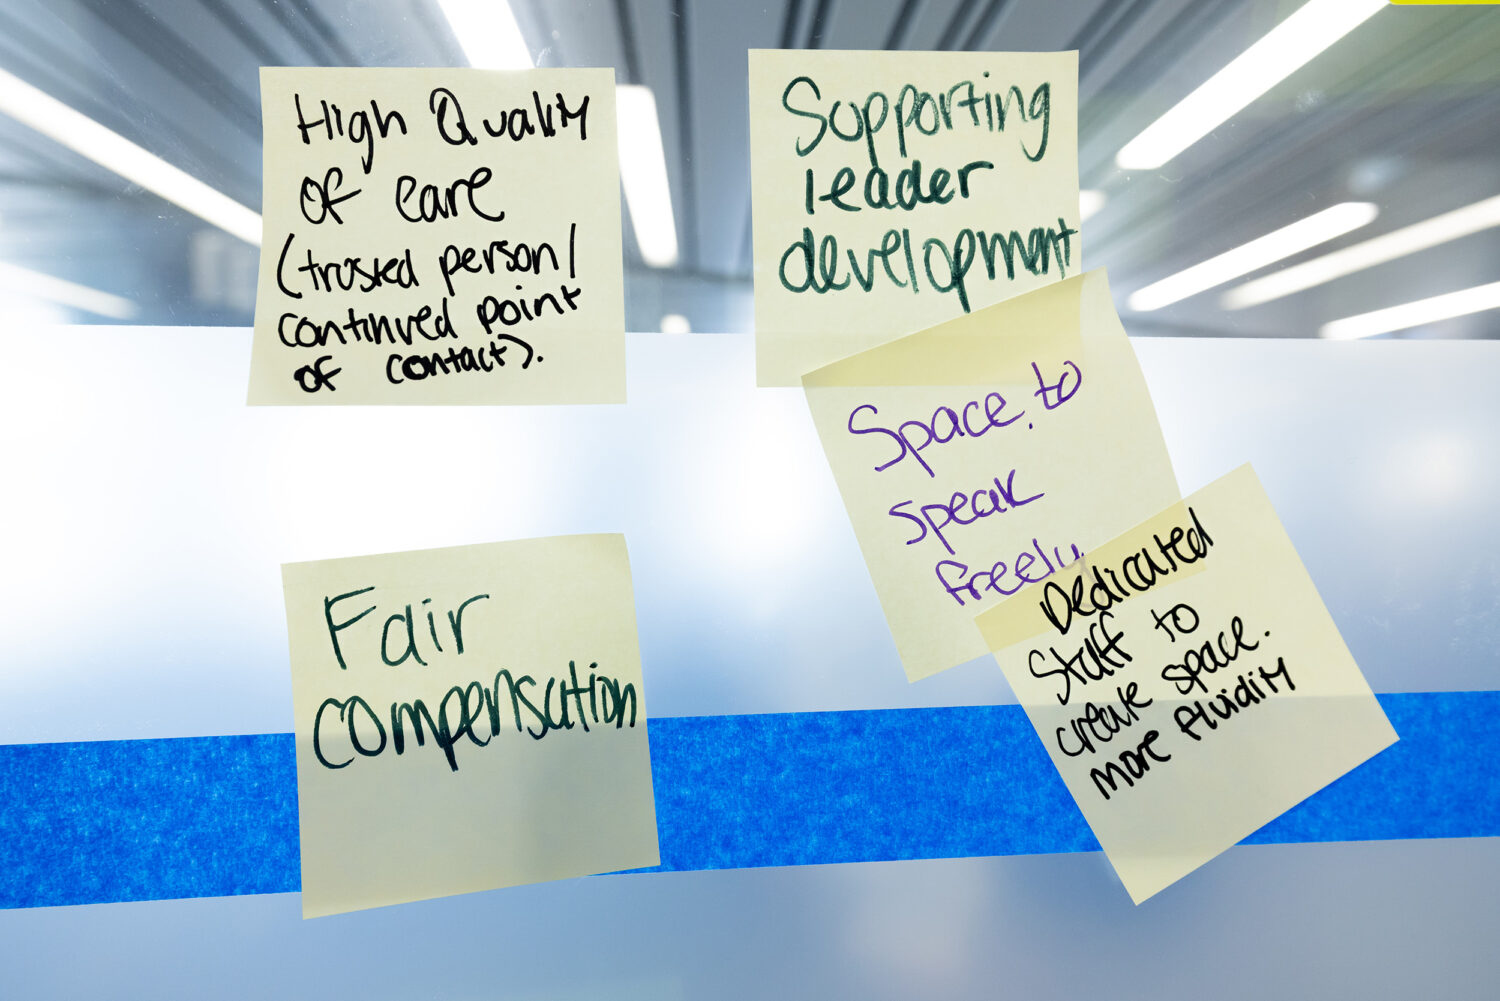 High Quality
of care
(trusted person/
continued point
of contact).
Supporting
leader
development
Space to
speak
freely
Fair
compensation
Dedicated
Staff to
create space.
more fluidity